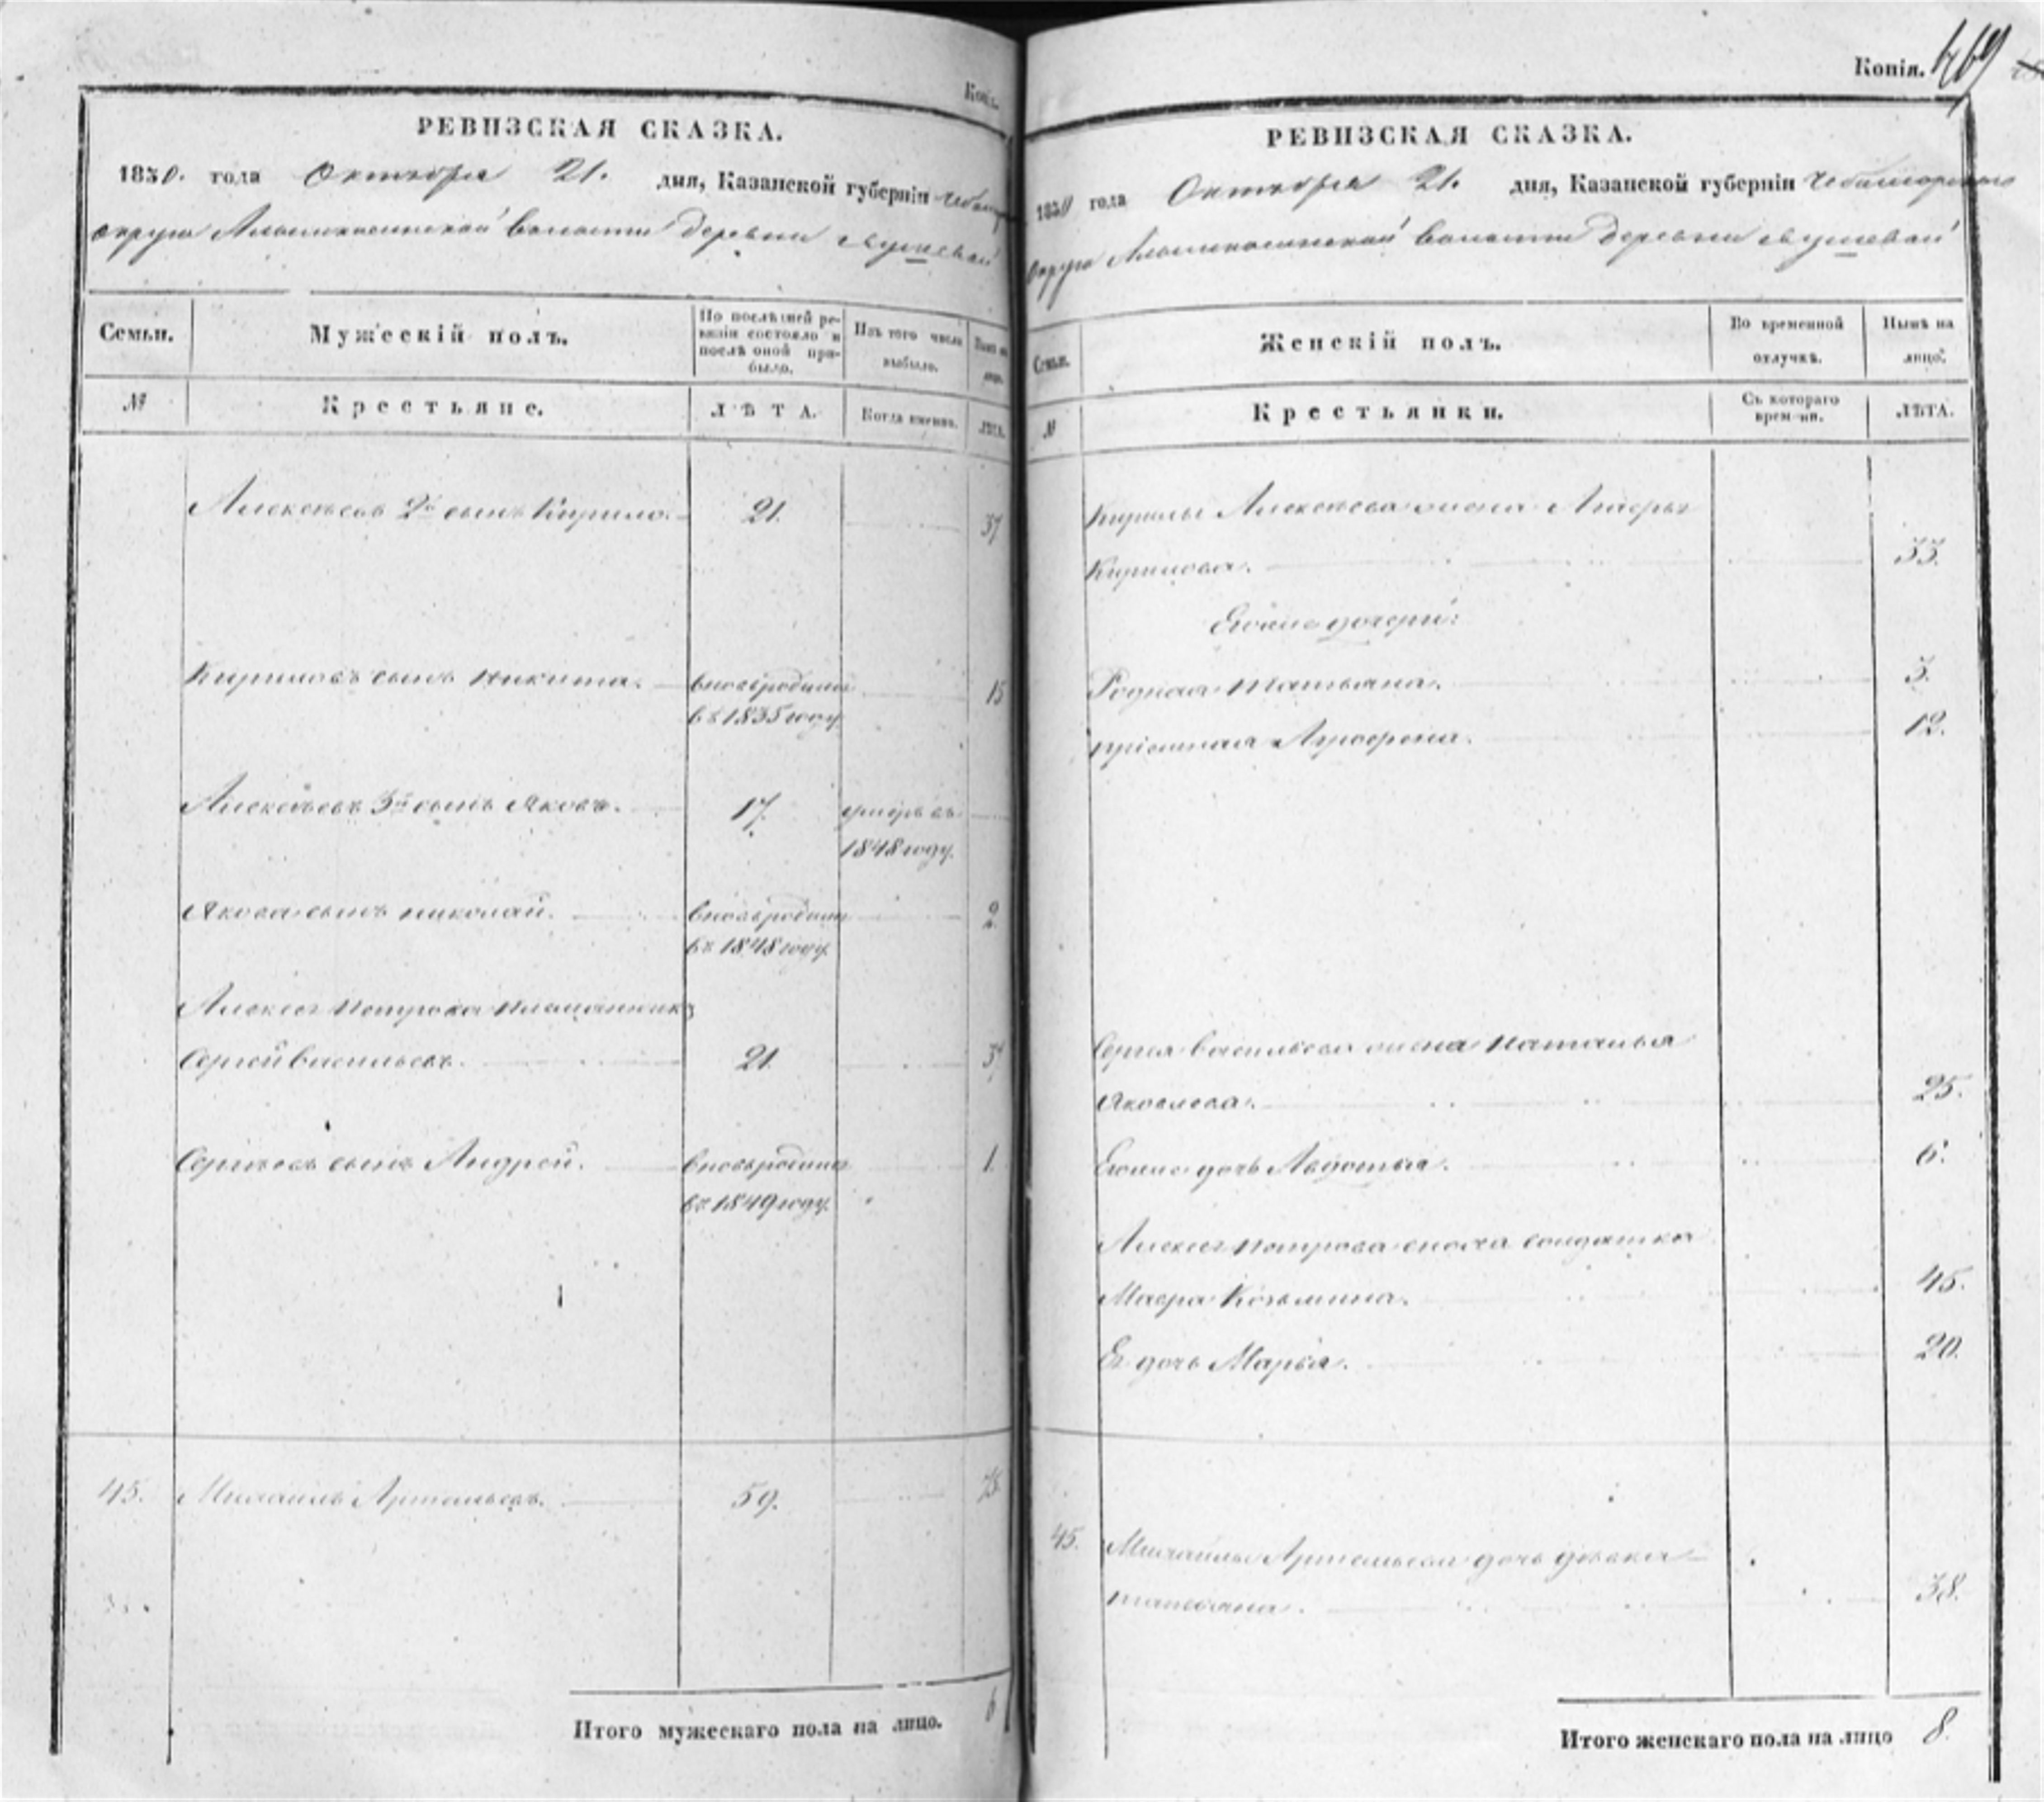 Копія.
РЕВИЗСКАЯ СКАЗКА.
1850. года Октября 21. дня, Казанской губерніи
округа волости деревни
Семьи. Мужескій полъ. По послѣдней ре- Изъ того числа Нынѣ на
визіи состояло и
послѣ оной при- выбыло. лицо.
было.
№ Крестьяне. ЛѢТА. Когда именно. ЛѢТА.
Алексѣевъ 2й сынъ Кирило. 21. 37
Кириловъ сынъ Никита. вновь родился 15
въ 1835 году
Алексѣевъ 3й сынъ Яковъ. 17. умеръ въ
1848 году.
Якова сынъ Николай. вновь родился 2
въ 1848 году.
Алексѣя Петрова племянникъ
Сергѣй Васильевъ. 21. 37
Сергѣевъ сынъ Андрей. вновь родился 1.
въ 1849 году.
45. Михайлъ Артемьевъ. 59. 75
Итого мужескаго пола на лицо. 6
Копія. 469
РЕВИЗСКАЯ СКАЗКА.
1850 года Октября 21. дня, Казанской губерніи Чебоксарскаго
округа волости деревни
Семьи. Женскій полъ. Во временной Нынѣ на
отлучкѣ. лицо.
№ Крестьянки. Съ котораго ЛѢТА.
времени.
Кирилы Алексѣева жена
Кирилова. 33.
Его же дочери:
Родная Татьяна. 3.
пріемная 12.
Сергѣя Васильева жена Наталья
Яковлева. 25.
Его же дочь Авдотья. 6.
Алексѣя Петрова сноха солдатка
Мавра Козьмина. 45.
Ея дочь Марья. 20.
45. Михайлы Артемьева дочь дѣвка
Татьяна. 38.
Итого женскаго пола на лицо 8.